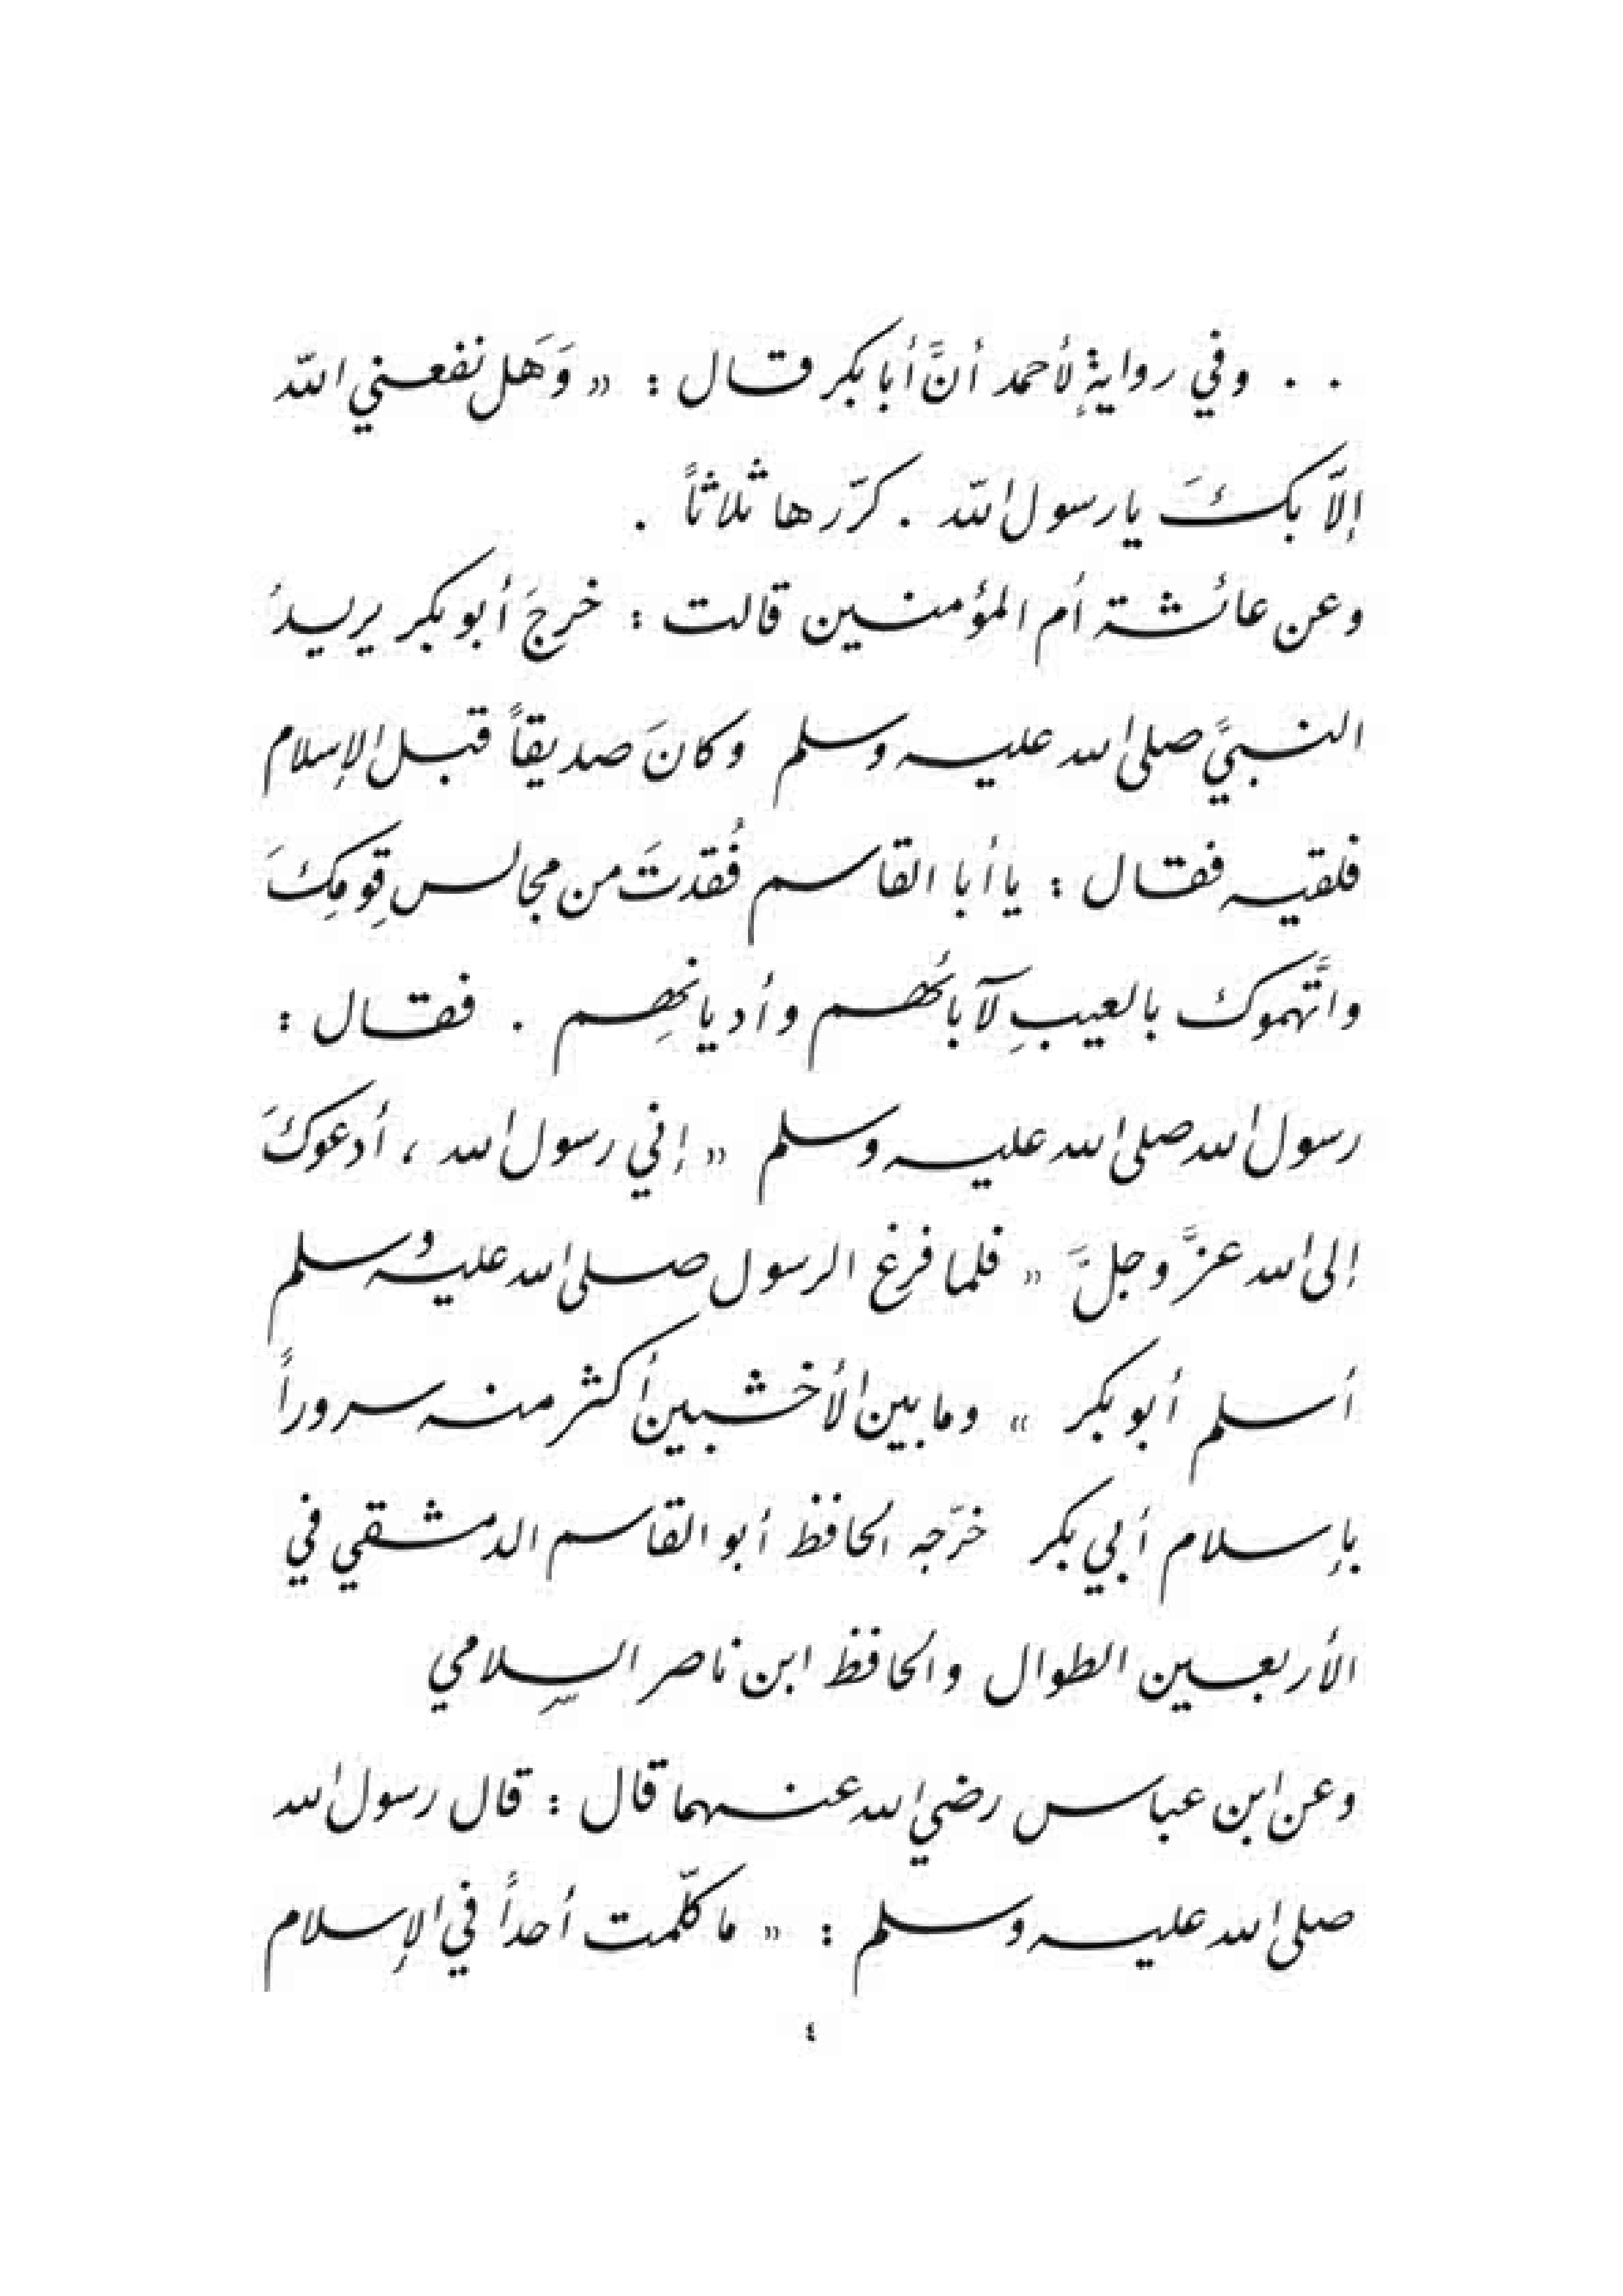 . . وفي روايةٍ لأحمد أنَّ أبا بكر قال : « وَهَل نفعني اللّه
إلّا بكَ يا رسول اللّه . كرّرها ثلاثاً .
وعن عائشة أم المؤمنين قالت : خرجَ أبو بكر يريدُ
النبيَّ صلى الله عليه وسلم وكانَ صديقاً قبل الإسلام
فلقيه فقال : يا أبا القاسم فُقدتَ من مجالسِ قومِكَ
واتَّهموك بالعيبِ لآبائهم وأديانهِم . فقال :
رسول الله صلى الله عليه وسلم « إني رسول الله ، أدعوكَ
إلى الله عزَّ وجلَّ « فلما فرغ الرسول صلى الله عليه وسلم
أسلم أبو بكر » وما بين الأخشبين أكثر منه سروراً
بإسلام أبي بكر خرّجه الحافظ أبو القاسم الدمشقي في
الأربعين الطوال والحافظ ابن ناصر السِّلامي
وعن ابن عباس رضي الله عنهما قال : قال رسول الله
صلى الله عليه وسلم : « ما كلّمت أحداً في الإسلام
٤